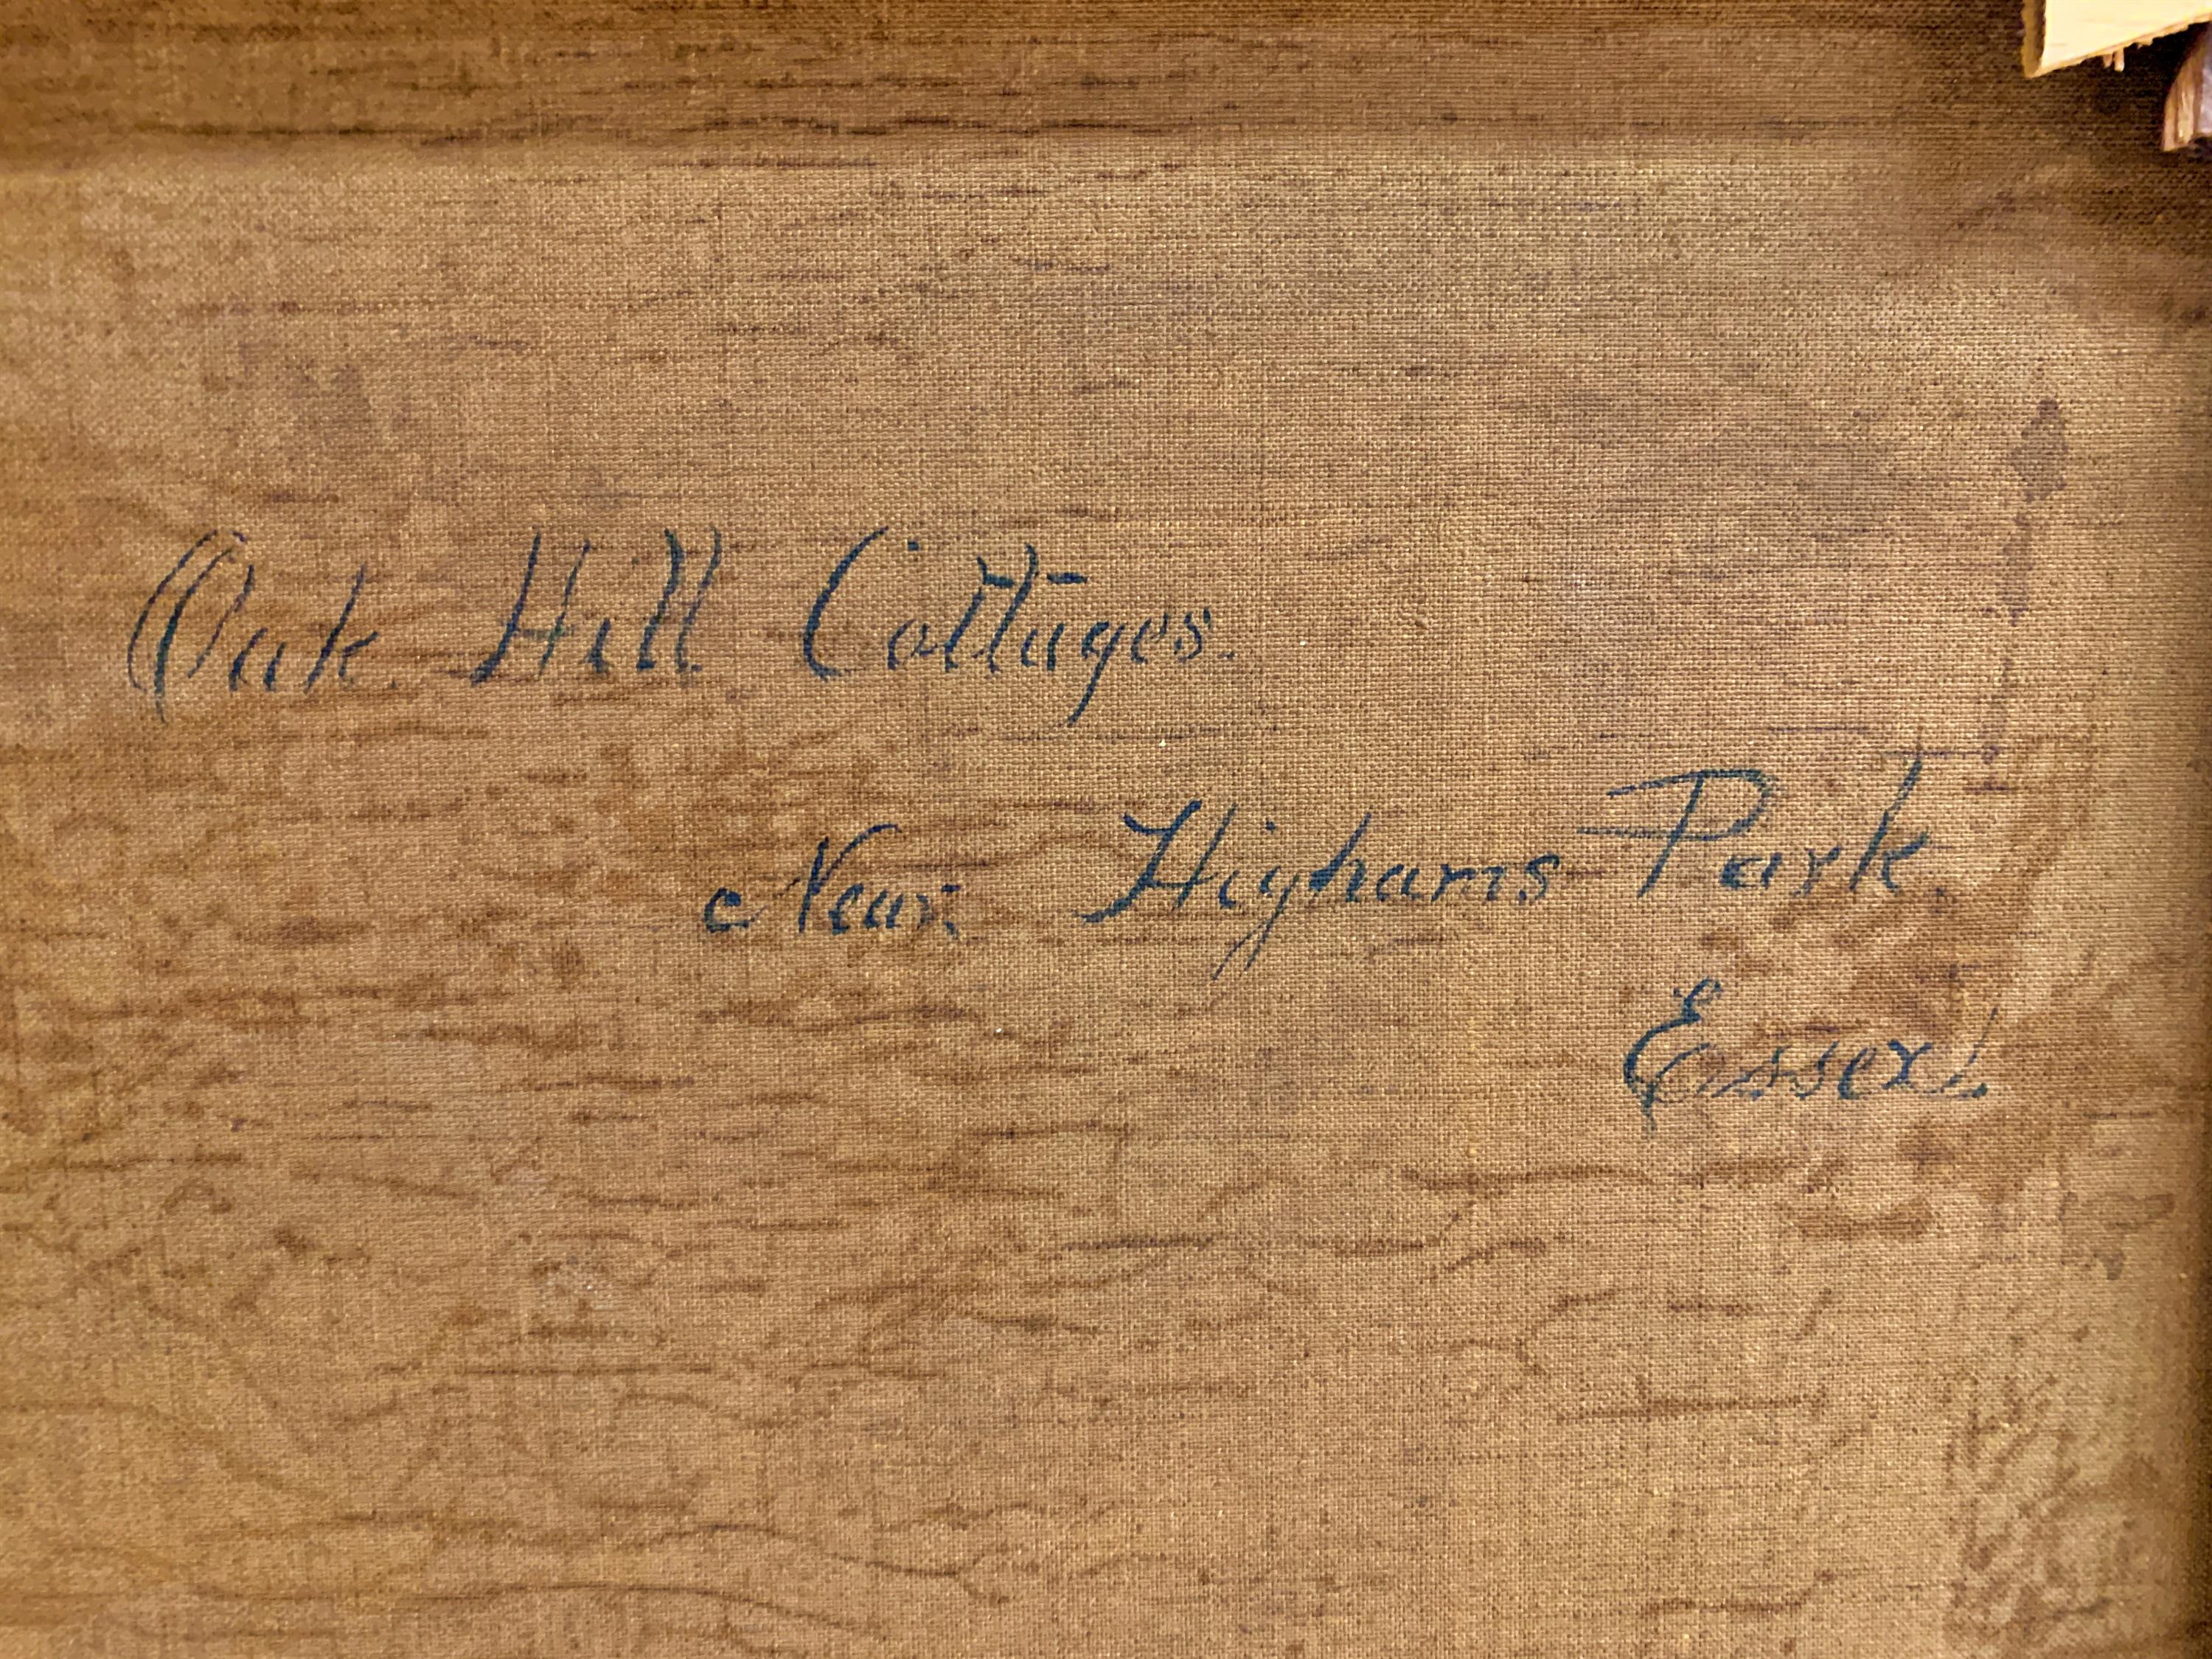 Oak Hill Cottages.
Near Highams Park.
Essex.